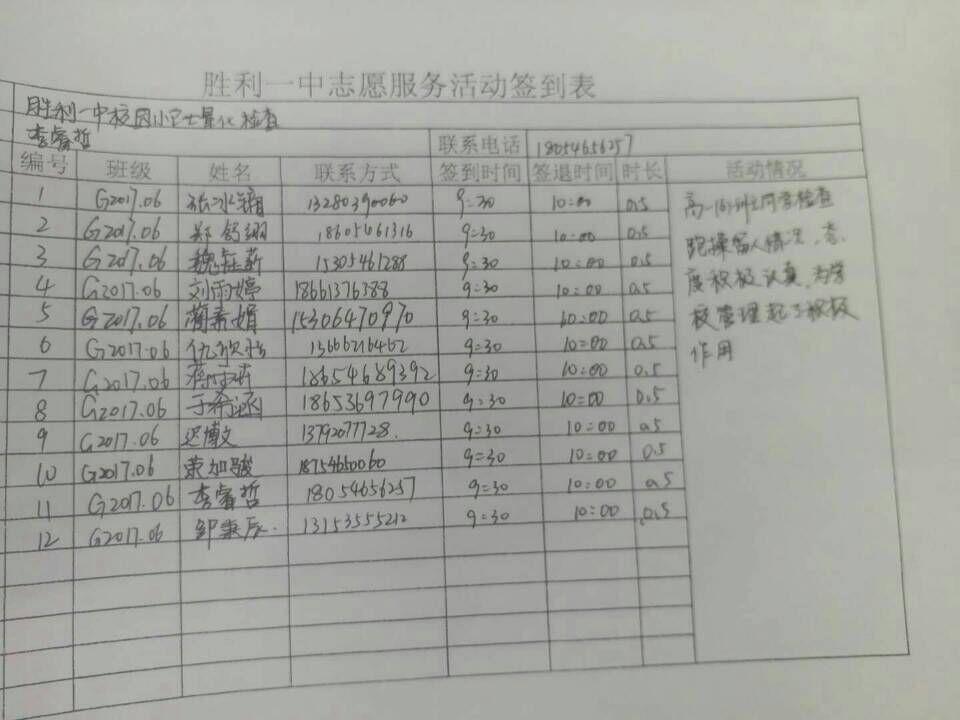 胜利一中志愿服务活动签到表
胜利一中校园小卫士量化检查
李睿哲 联系电话 18054656257
编号 班级 姓名 联系方式 签到时间 签退时间 时长 活动情况
1 G2017.06 13280390060 9:30 10:00 0.5
2 G2017.06 郑舒翊 18605461316 9:30 10:00 0.5
3 G2017.06 魏钰薪 15305461288 9:30 10:00 0.5
4 G2017.06 刘雨婷 18661376388 9:30 10:00 0.5
5 G2017.06 15306470970 9:30 10:00 0.5
6 G2017.06 13666216462 9:30 10:00 0.5
7 G2017.06 18654689392 9:30 10:00 0.5
8 G2017.06 于希涵 18653697990 9:30 10:00 0.5
9 G2017.06 迟博文 1379207728. 9:30 10:00 0.5
10 G2017.06 荣加骏 18754650060 9:30 10:00 0.5
11 G2017.06 李睿哲 18054656257 9:30 10:00 0.5
12 G2017.06 邹秉辰. 13153555212 9:30 10:00 0.5
高一16班同学检查
跑操留人情况,态
度积极认真,为学
校管理起了积极
作用